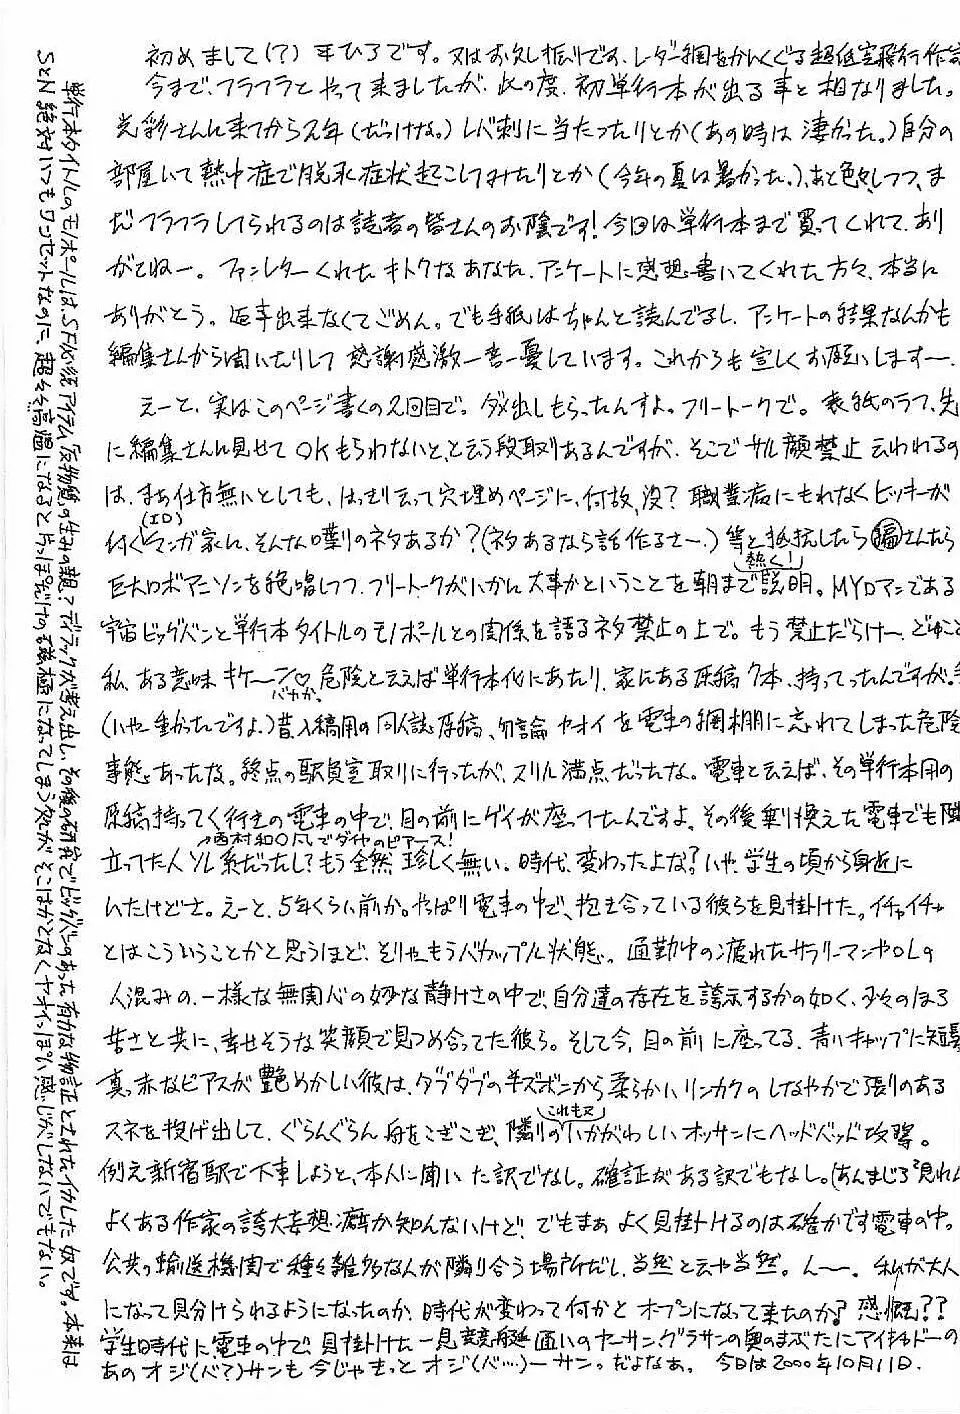 初めまして(?) ひろです。又はお久し振りです、レーダー網をかいくぐる超低空飛行作家
今まで、フラフラとやって来ましたが、此の度、初単行本が出る事と相なりました。
光彩さんに来てから2年(だっけな。)レバ刺に当たったりとか(あの時は凄かった。)自分の
部屋にいて熱中症で脱水症状起こしてみたりとか(今年の夏は暑かった。)、あと色々しつつ、ま
だフラフラしてられるのは読者の皆さんのお陰です!今回は単行本まで買ってくれて、あり
がとねー。ファンレターくれたキトクなあなた、アンケートに感想書いてくれた方々、本当に
ありがとう。返事出来なくてごめん。でも手紙はちゃんと読んでるし、アンケートの結果なんかも
編集さんから聞いたりして感謝感激一喜一憂しています。これからも宜しくお願いします〜。
えーと、実はこのページ書くの2回目で。ダメ出しもらったんすよ。フリートークで。表紙のラフ、先
に編集さんに見せてOKもらわないと、と云う段取りあるんですが、そこでサル顔禁止云われるの
は、まあ仕方無いとしても、はっきり云って穴埋めページに、何故、没?職業病にもれなくヒッキーが
付く(ID)マンガ家に、そんな喋りのネタあるか?(ネタあるなら話作るさー。)等と抵抗したら編さんたら
巨大ロボアニソンを絶唱しつつ、フリートークがいかに大事かということを朝まで熱く!説明。MYロマンである
宇宙ビッグバンと単行本タイトルのモノポールとの関係を語るネタ禁止の上で。もう禁止だらけー、どゆこと
私、ある意味キケーン♡バカか。危険と云えば単行本化にあたり、家にある原稿7本、持ってったんですが。
(いやー重かったですよ。)昔入稿用の同人誌原稿、勿論ヤオイを電車の網棚に忘れてしまった危険
事態あったな。終点の駅員室取りに行ったが、スリル満点だったな。電車と云えば、その単行本用の
原稿持ってく行きの電車の中で、目の前にゲイが座ってたんですよ。その後乗り換えた電車でも隣
→西村和○風でダイヤのピアース!
立ってた人ソレ系だったし?もう全然珍しく無い。時代、変わったよな?いや、学生の頃から身近に
いたけどさ。えーと、5年くらい前か。やっぱり電車の中で、抱き合っている彼らを見掛けた。イチャイチャ
とはこういうことかと思うほど、そりゃもうバカップル状態。通勤中の疲れたサラリーマンやOLの
人混みの、一様な無関心の妙な静けさの中で、自分達の存在を誇示するかの如く、少々のほろ
苦さと共に、幸せそうな笑顔で見つめ合ってた彼ら。そして今、目の前に座ってる、青いキャップに短髪
真っ赤なピアスが艶めかしい彼は、ダブダブの半ズボンから柔らかいリンカクのしなやかで張りのある
スネを投げ出して、ぐらんぐらん舟をこぎこぎ、隣のこれも又いかがわしいオッサンにヘッドバッド攻撃。
例え新宿駅で下車しようと、本人に聞いた訳でなし。確証がある訳でもなし。(あんまじろじろ見れん
よくある作家の誇大妄想癖か知んないけど、でもまあよく見掛けるのは確かです電車の中。
公共の輸送機関で種々雑多な人が隣り合う場所だし、当然と云や当然。んー。私が大人
になって見分けられるようになったのか、時代が変わって何かとオープンになって来たのか?感慨??
学生時代に電車の中で、見掛けた一見競艇通いのヤーサン、グラサンの奥のまぶたにアイシャドーの
あのオジ(バ?)サンも今じゃきっとオジ(バ…)ーサン。だよなぁ。 今日は2000年10月11日.
単行本タイトルのモノポールは、SF必須アイテム「反物質」の生みの親、ディラックが考え出し、その後の研究でビッグバンのあった有力な物証とされたイカした奴です。本来は
SとN絶対いつもワンセットなのに、超々高温になると片っぽだけの磁極になってしまう処が、そこはかとなくヤオイっぽい感じがしないでもない。